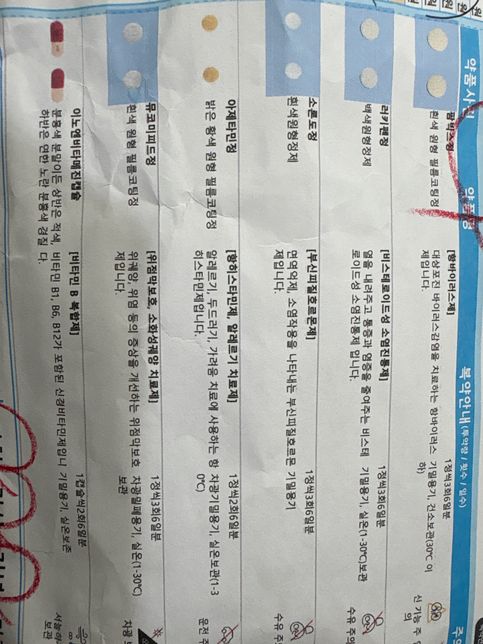 약품사진
약품명
복약안내(투약량 / 횟수 / 일수)
주의
팜빅스정
흰색 원형 필름코팅정
[항바이러스제]
대상포진 바이러스감염을 치료하는 항바이러스
제입니다.
1정씩3회6일분
기밀용기, 건소보관(30℃ 이
하)
신 기능 주
러키펜정
백색원형정제
[비스테로이드성 소염진통제]
열을 내려주고 통증과 염증을 줄여주는 비스테
로이드성 소염진통제 입니다.
1정씩3회6일분
기밀용기, 실온(1-30℃)보관
수유 주의
소론도정
흰색원형정제
[부신피질호르몬제]
면역억제, 소염작용을 나타내는 부신피질호르몬
제입니다.
1정씩3회6일분
기밀용기
수유 주
아제타민정
밝은 황색 원형 필름코팅정
[항히스타민제, 알레르기 치료제]
알레르기, 두드러기, 가려움 치료에 사용하는 항
히스타민제입니다.
1정씩2회6일분
차광기밀용기, 실온보관(1-3
0℃)
운전 주
뮤코미피드정
흰색 원형 필름코팅정
[위점막보호, 소화성궤양 치료제]
위궤양, 위염 등의 증상을 개선하는 위점막보호
제입니다.
1정씩3회6일분
차광밀폐용기, 실온(1-30℃)
보관
차광
이노엔비타메진캡슐
분홍색 분말이든 상반은 적색,
하반은 연한 노란 분홍색 경질
[비타민 B 복합제]
비타민 B1, B6, B12가 포함된 신경비타민제입니
다.
1캡슐씩2회6일분
기밀용기, 실온보존
보관